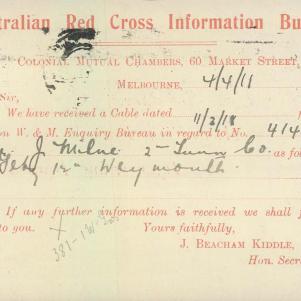 tralian Red Cross Information Bu
Colonial Mutual Chambers, 60 Market Street,
Melbourne, 4/4/18
Sir,
We have received a Cable dated 11/3/18
on W. & M. Enquiry Bureau in regard to No. 414
J Milne 2 Tunn Co. as fo
Weymouth
If any further information is received we shall f
to you. Yours faithfully,
J. Beacham Kiddle,
Hon. Secre